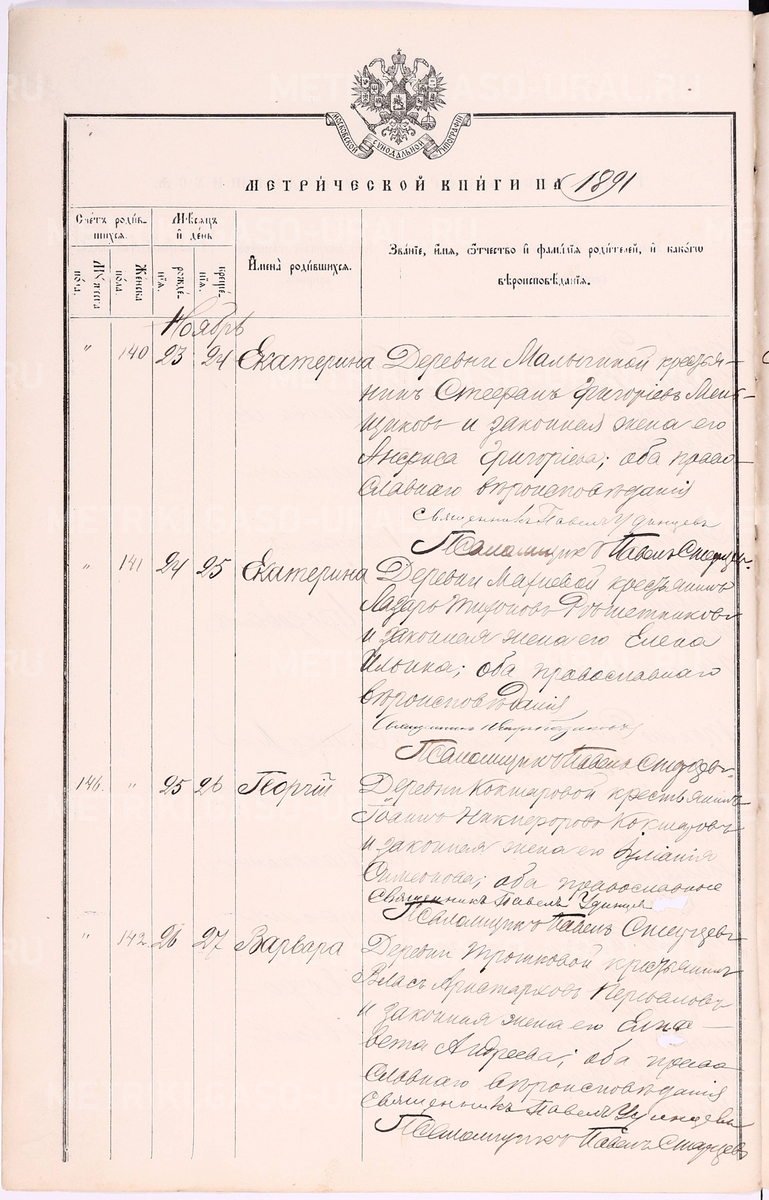 МОСКОВСКОЙ СУНОДАЛЬНОЙ ТИПОГРАФІИ
МЕТРИ́ЧЕСКОЙ КНИ́ГИ НА 1891
Сче́тъ роди́в-
шихся.
Мѣсяцъ
и҆ де́нь
И҆мена̀ роди́вшихся.
Зва́ніе, и҆́мя, ѻ҆́тчество и҆ фами́лія роди́телей, и҆ како́гѡ
вѣроисповѣ́данія.
Му́жеска
по́ла.
Же́нска
по́ла.
рожде́-
нія.
креще́-
нія.
Ноябрь
" 140 23 24 Екатерина Деревни Малыгиной крестья-
нинъ Стефанъ Григоріевъ Мень-
щиковъ и законная жена его
Анфиса Григоріева; оба право-
славнаго вѣроисповѣданія
Священникъ Павелъ Удинцевъ
Псаломщикъ Павелъ Старцевъ.
" 141 24 25 Екатерина Деревни крестьянинъ
Лазарь Тихоновъ Рѣшетниковъ
и законная жена его Елена
Ильина; оба православнаго
вѣроисповѣданія
Священникъ
Псаломщикъ Павелъ Старцевъ.
146. " 25 26 Георгій Деревни Кокшаровой крестьянинъ
Іоаннъ Никифоровъ Кокшаровъ
и законная жена его Іуліанія
Симеонова; оба православные
Священникъ Павелъ Удинцев
Псаломщикъ Павелъ Старцевъ
" 142 26 27 Варвара Деревни Трошковой крестьянинъ
Власъ Аристарховъ Перваловъ
и законная жена его Елиса-
вета Андреева; оба право-
славнаго вѣроисповѣданія
Священникъ Павелъ Удинцевъ
Псаломщикъ Павелъ Старцевъ
METRIKI.GASO-URAL.RU